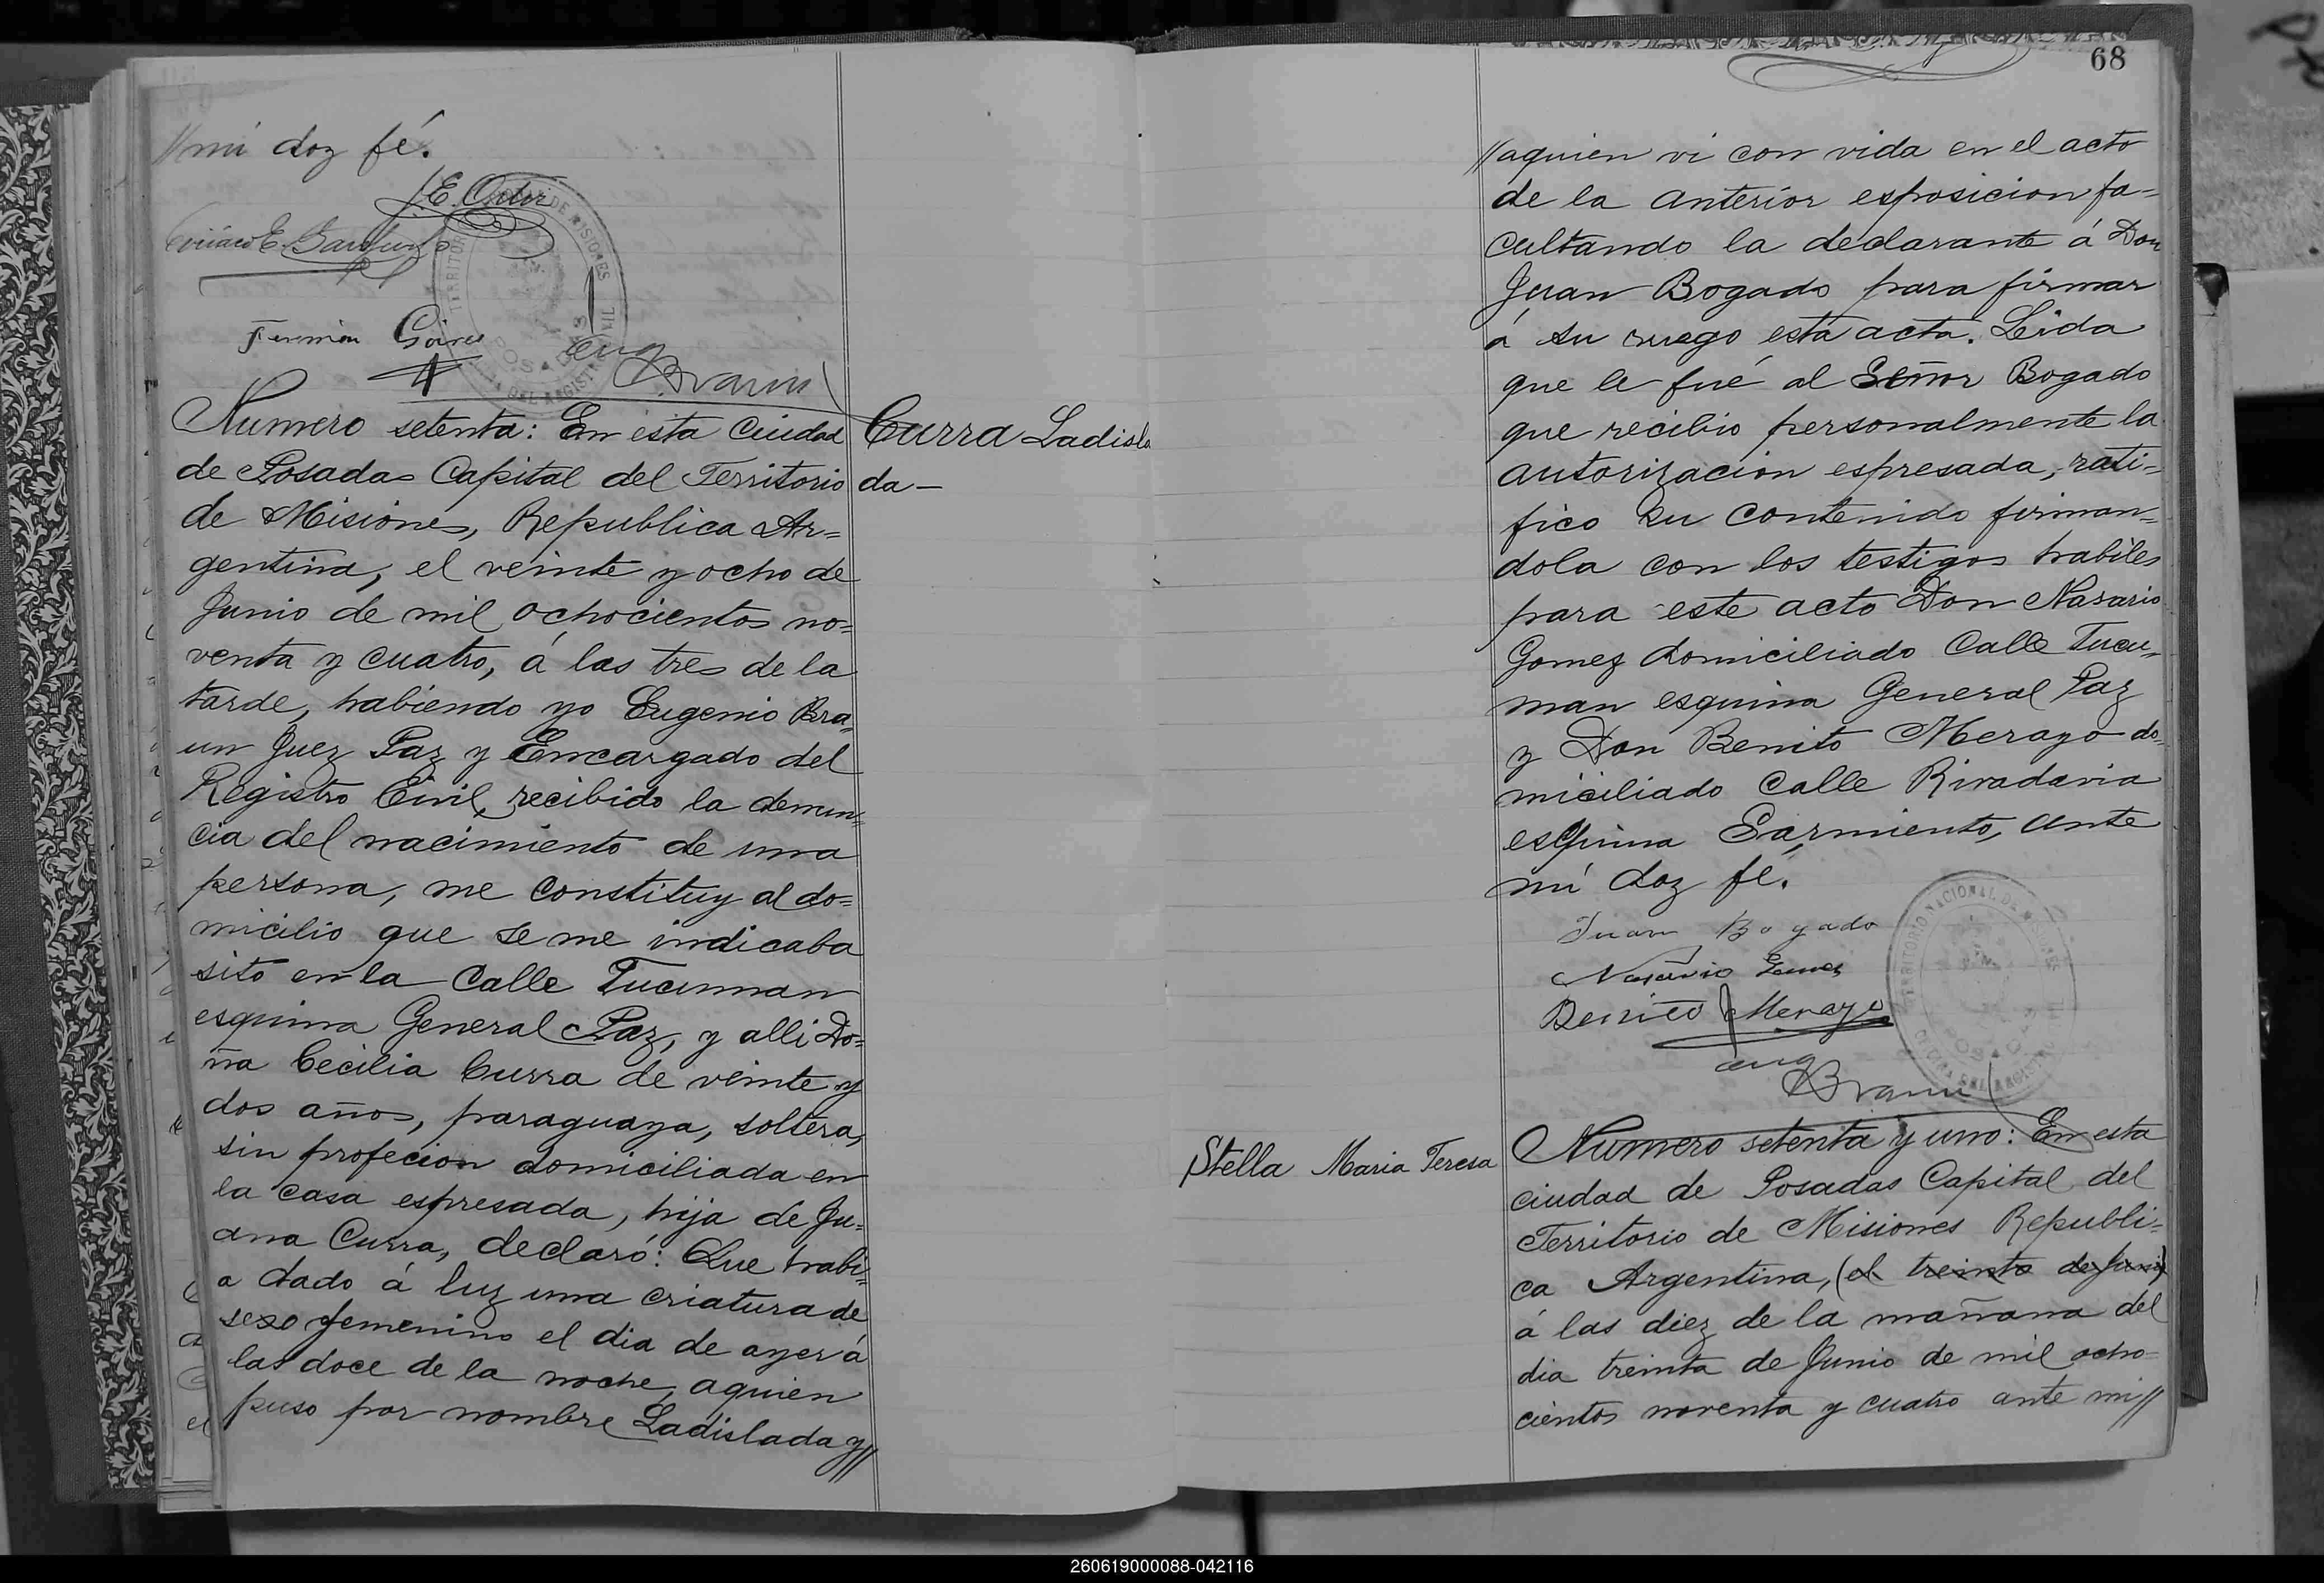 // mí doy fé.
Fermin
Eug
Braun
Numero setenta: En esta Ciudad
de Posadas Capital del Territorio
de Misiones, Republica Ar=
gentina, el veinte y ocho de
Junio de mil ochocientos no=
venta y cuatro, á las tres de la
tarde, habiendo yo Eugenio Bra=
un Juez Paz y Encargado del
Registro Civil, recibido la denun=
cia del nacimiento de una
persona, me constituy al do=
micilio que se me indicaba
sito en la Calle Tucuman
esquina General Paz, y alli Do=
ña Cecilia Curra de veinte y
dos años, paraguaya, soltera,
sin profecion domiciliada en
la casa espresada, hija de Ju=
ana Curra, declaró: Que habi=
a dado á luz una criatura de
sexo femenino el dia de ayer á
las doce de la noche, aquien
puso por nombre Ladislada y//
Curra Ladisla
da—
68
//aquien vi con vida en el acto
de la anterior esposicion fa=
cultando la declarante á Don
Juan Bogado para firmar
á su ruego esta acta. Leida
que le fué al Señor Bogado
que recibio personalmente la
autorizacion espresada, rati=
fico su contenido firman=
dola con los testigos habiles
para este acto Don Nasario
Gomez domiciliado Calle Tucu=
man esquina General Paz
y Don Benito Merayo do=
miciliado Calle Rivadavia
esquina Sarmiento, ante
mí doy fé.
Juan Bogado
Nasario Gomes
Benito Merayo
Eug
Braun
TERRITORIO NACIONAL DE MISIONES
POSADAS
OFICINA DEL REGISTRO CIVIL
Stella Maria Teresa
Numero setenta y uno: En esta
ciudad de Posadas Capital del
Territorio de Misiones Republi=
ca Argentina, (el treinta de Junio)
á las diez de la mañana del
dia treinta de Junio de mil ocho=
cientos noventa y cuatro ante mi//
260619000088-042116